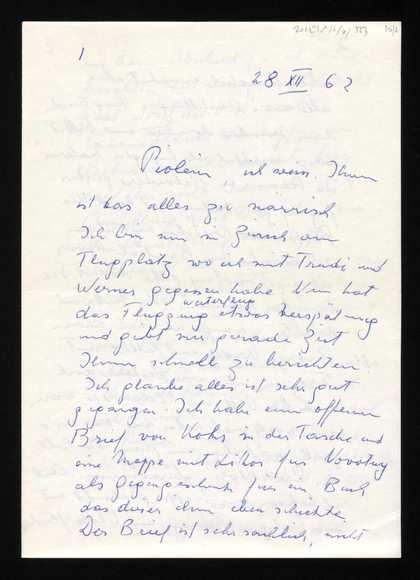 1
28 XII 62
ich weiss, Ihnen
ist das alles zu närrisch
Ich bin nun in Zürich am
Flugplatz wo ich mit Trudi und
Werner gegessen habe Nun hat
weiterflug
das Flugzeug etwas Verspätung
und gibt mir gerade Zeit
Ihnen schnell zu berichten
Ich glaube alles ist sehr gut
gegangen. Ich habe einen offenen
Brief von Koks in der Tasche und
eine Mappe mit Lithos für
als Gegengeschenk für ein Buch
das dieser ihm eben schickte.
Der Brief ist sehr sachlich, nicht